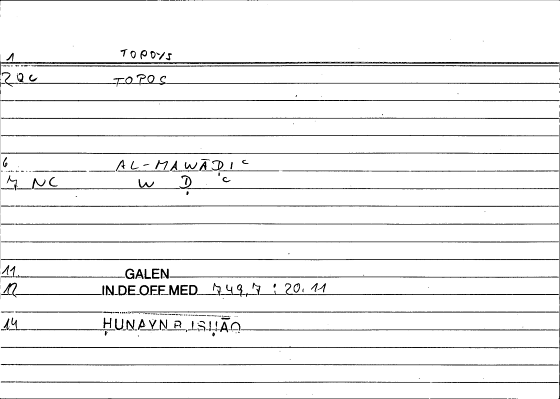 1 TOPOYS
2 QC TOPOS
6 AL-MAWĀḌIʿ
7 NC W Ḍ ʿ
11 GALEN
12 IN.DE OFF MED 749,7 : 20.11
14 ḤUNAYN B. ISḤĀQ